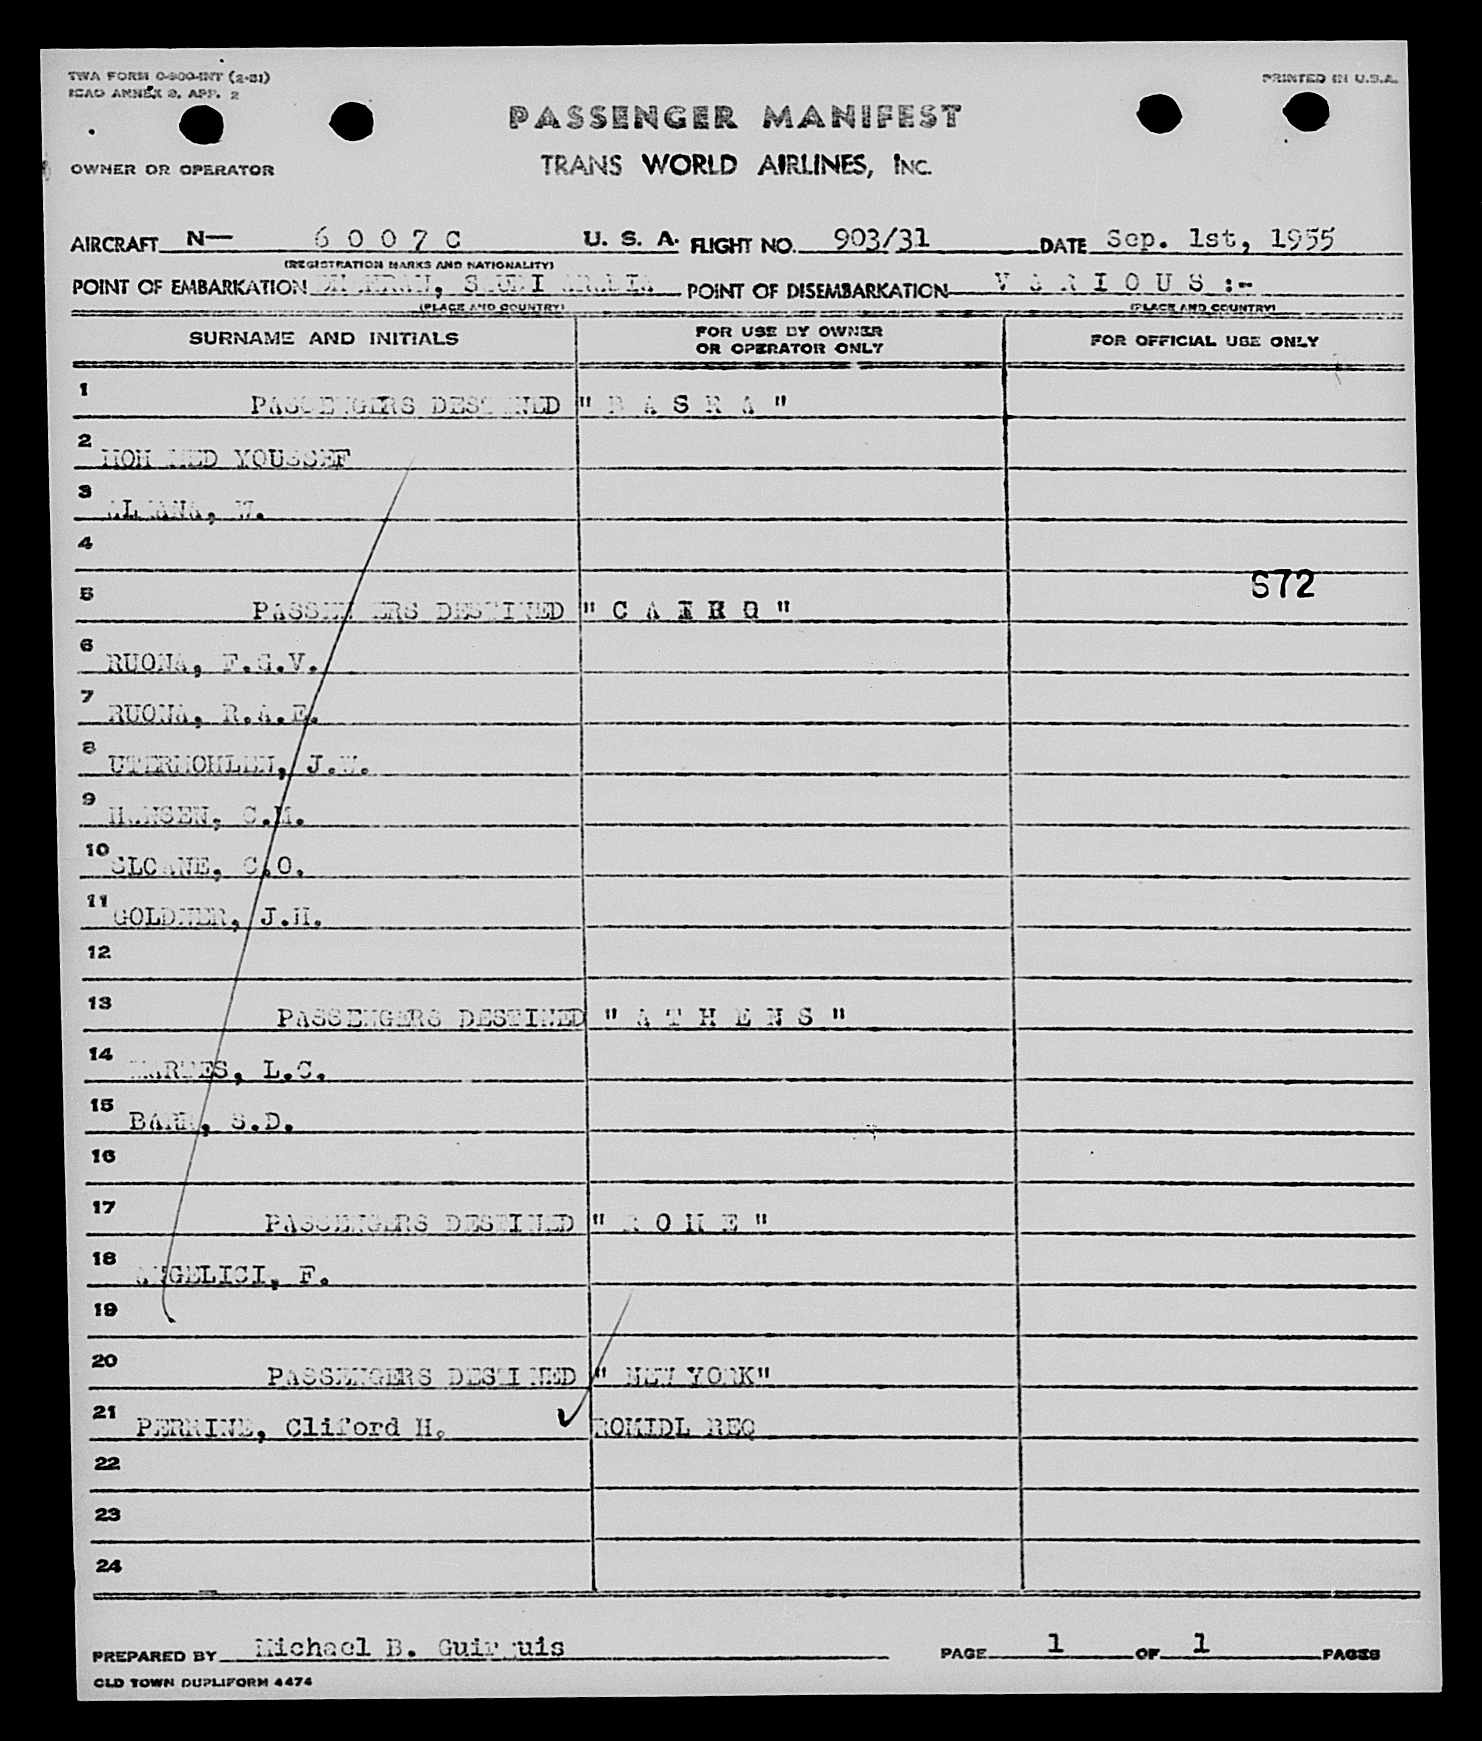 TWA FORM 0-900-INT (2-51)
ICAO ANNEX 9, APP. 2
PRINTED IN U.S.A.
PASSENGER MANIFEST
OWNER OR OPERATOR
TRANS WORLD AIRLINES, INC.
AIRCRAFT N— 6 0 0 7 C U. S. A. FLIGHT NO. 903/31 DATE Sep. 1st, 1955
(REGISTRATION MARKS AND NATIONALITY)
POINT OF EMBARKATION DHAHRAN, SAUDI ARABIA POINT OF DISEMBARKATION V A R I O U S :-
(PLACE AND COUNTRY) (PLACE AND COUNTRY)
SURNAME AND INITIALS FOR USE BY OWNER OR OPERATOR ONLY FOR OFFICIAL USE ONLY
1 PASSENGERS DESTINED " B A S R A "
2 MOHAMED YOUSSEF
3 W.
4
672
5 PASSENGERS DESTINED " C A I R O "
6 RUONA, F.G.V.
7 RUONA, R.A.E.
8 UTERMOHLEN, J.W.
9 HANSEN, C.M.
10 SLOANE, C.O.
11 GOLDNER, J.H.
12
13 PASSENGERS DESTINED " A T H E N S "
14 L.C.
15 S.D.
16
17 PASSENGERS DESTINED " R O M E "
18 ANGELICI, F.
19
20 PASSENGERS DESTINED " NEW YORK"
21 PERRINE, Clifford H. ROMIDL REQ
22
23
24
PREPARED BY Michael B. Guirguis PAGE 1 OF 1 PAGES
OLD TOWN DUPLIFORM 4474